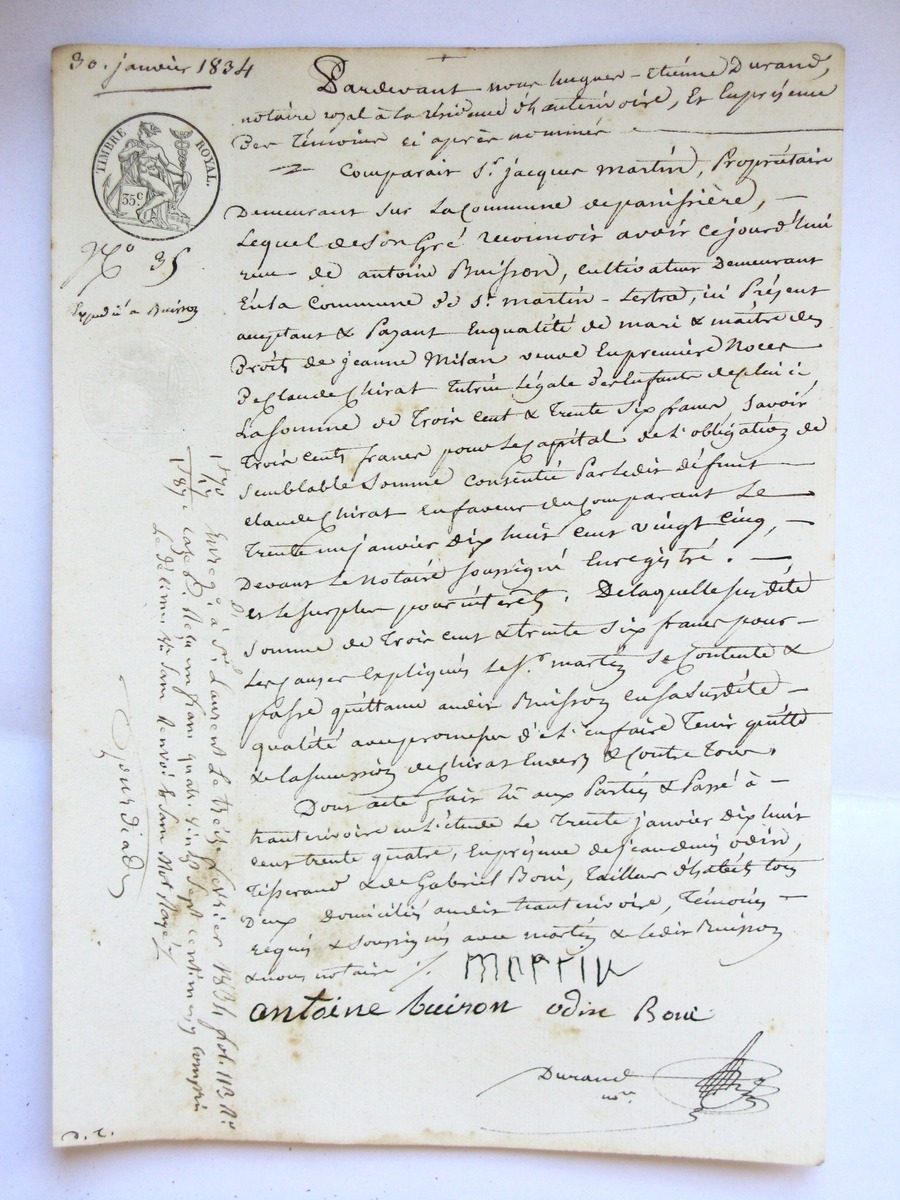 30. janvier 1834
Pardevant nous hugues-Etienne Durand,
notaire royal à la résidence d'hauterivoire, Et Enprésence
Des Témoins ci après nommés
Comparait Sr. jacques martin, Propriétaire
Demeurant sur La Commune depanissière,
Lequel de Son Gré reconnoit avoir cejourd'hui
reçu de antoine Buisson, cultivateur Demeurant
En la Commune de St. martin-Lestra, ici Présent
acceptant & Payant Enqualité de mari & maître des
Droits de jeanne Milan veuve Enpremière Noces
De Claude Chirat Tutrice Légale Des Enfants decelui ci
La Somme de Trois Cent & Trente Six francs, Savoir
Trois Cents francs pour Le Capital de L'obligation de
Semblable Somme Consentie Par Ledit défunt
Claude Chirat Enfaveur du Comparant Le
Trente un janvier Dix huit Cent vingt Cinq,
Devant Le Notaire Soussigné Enregistré.
Et Le Surplus pour intérêts. De laquelle Susdite
Somme de Trois Cent & trente Six francs pour
Les Causes Expliquées Le Sr. martin Se Contente &
passe quittance audit Buisson en sa Susdite
qualité avec promesse d'e L'En faire Tenir quitte
& la Succession de Chirat Envers & Contre Tous,
Dont acte fait Lû aux Parties & Passé à
hauterivoire en L'étude Le Trente janvier Dix huit
Cent trente quatre, Enprésence de jean denis odin,
Tisserand & de Gabriel Boni, Tailleur d'habits tous
Deux Domiciliés audit hauterivoire, Témoins
requis & Soussignés avec martin & Ledit Buisson
& nous notaire /.
martin
antoine buison odin Boni
Durand
nore
TIMBRE ROYAL.
35c
No 35
Expédié à Buisson
1,70
17
1,87
Enregé. à St. Laurent Le treize février 1834 fol. 113 Ro.
Ce. Reçu un franc quatre vingt Sept centimes compris
Le décime Sans Renvoi & Sans Mot Rayé
D. L.